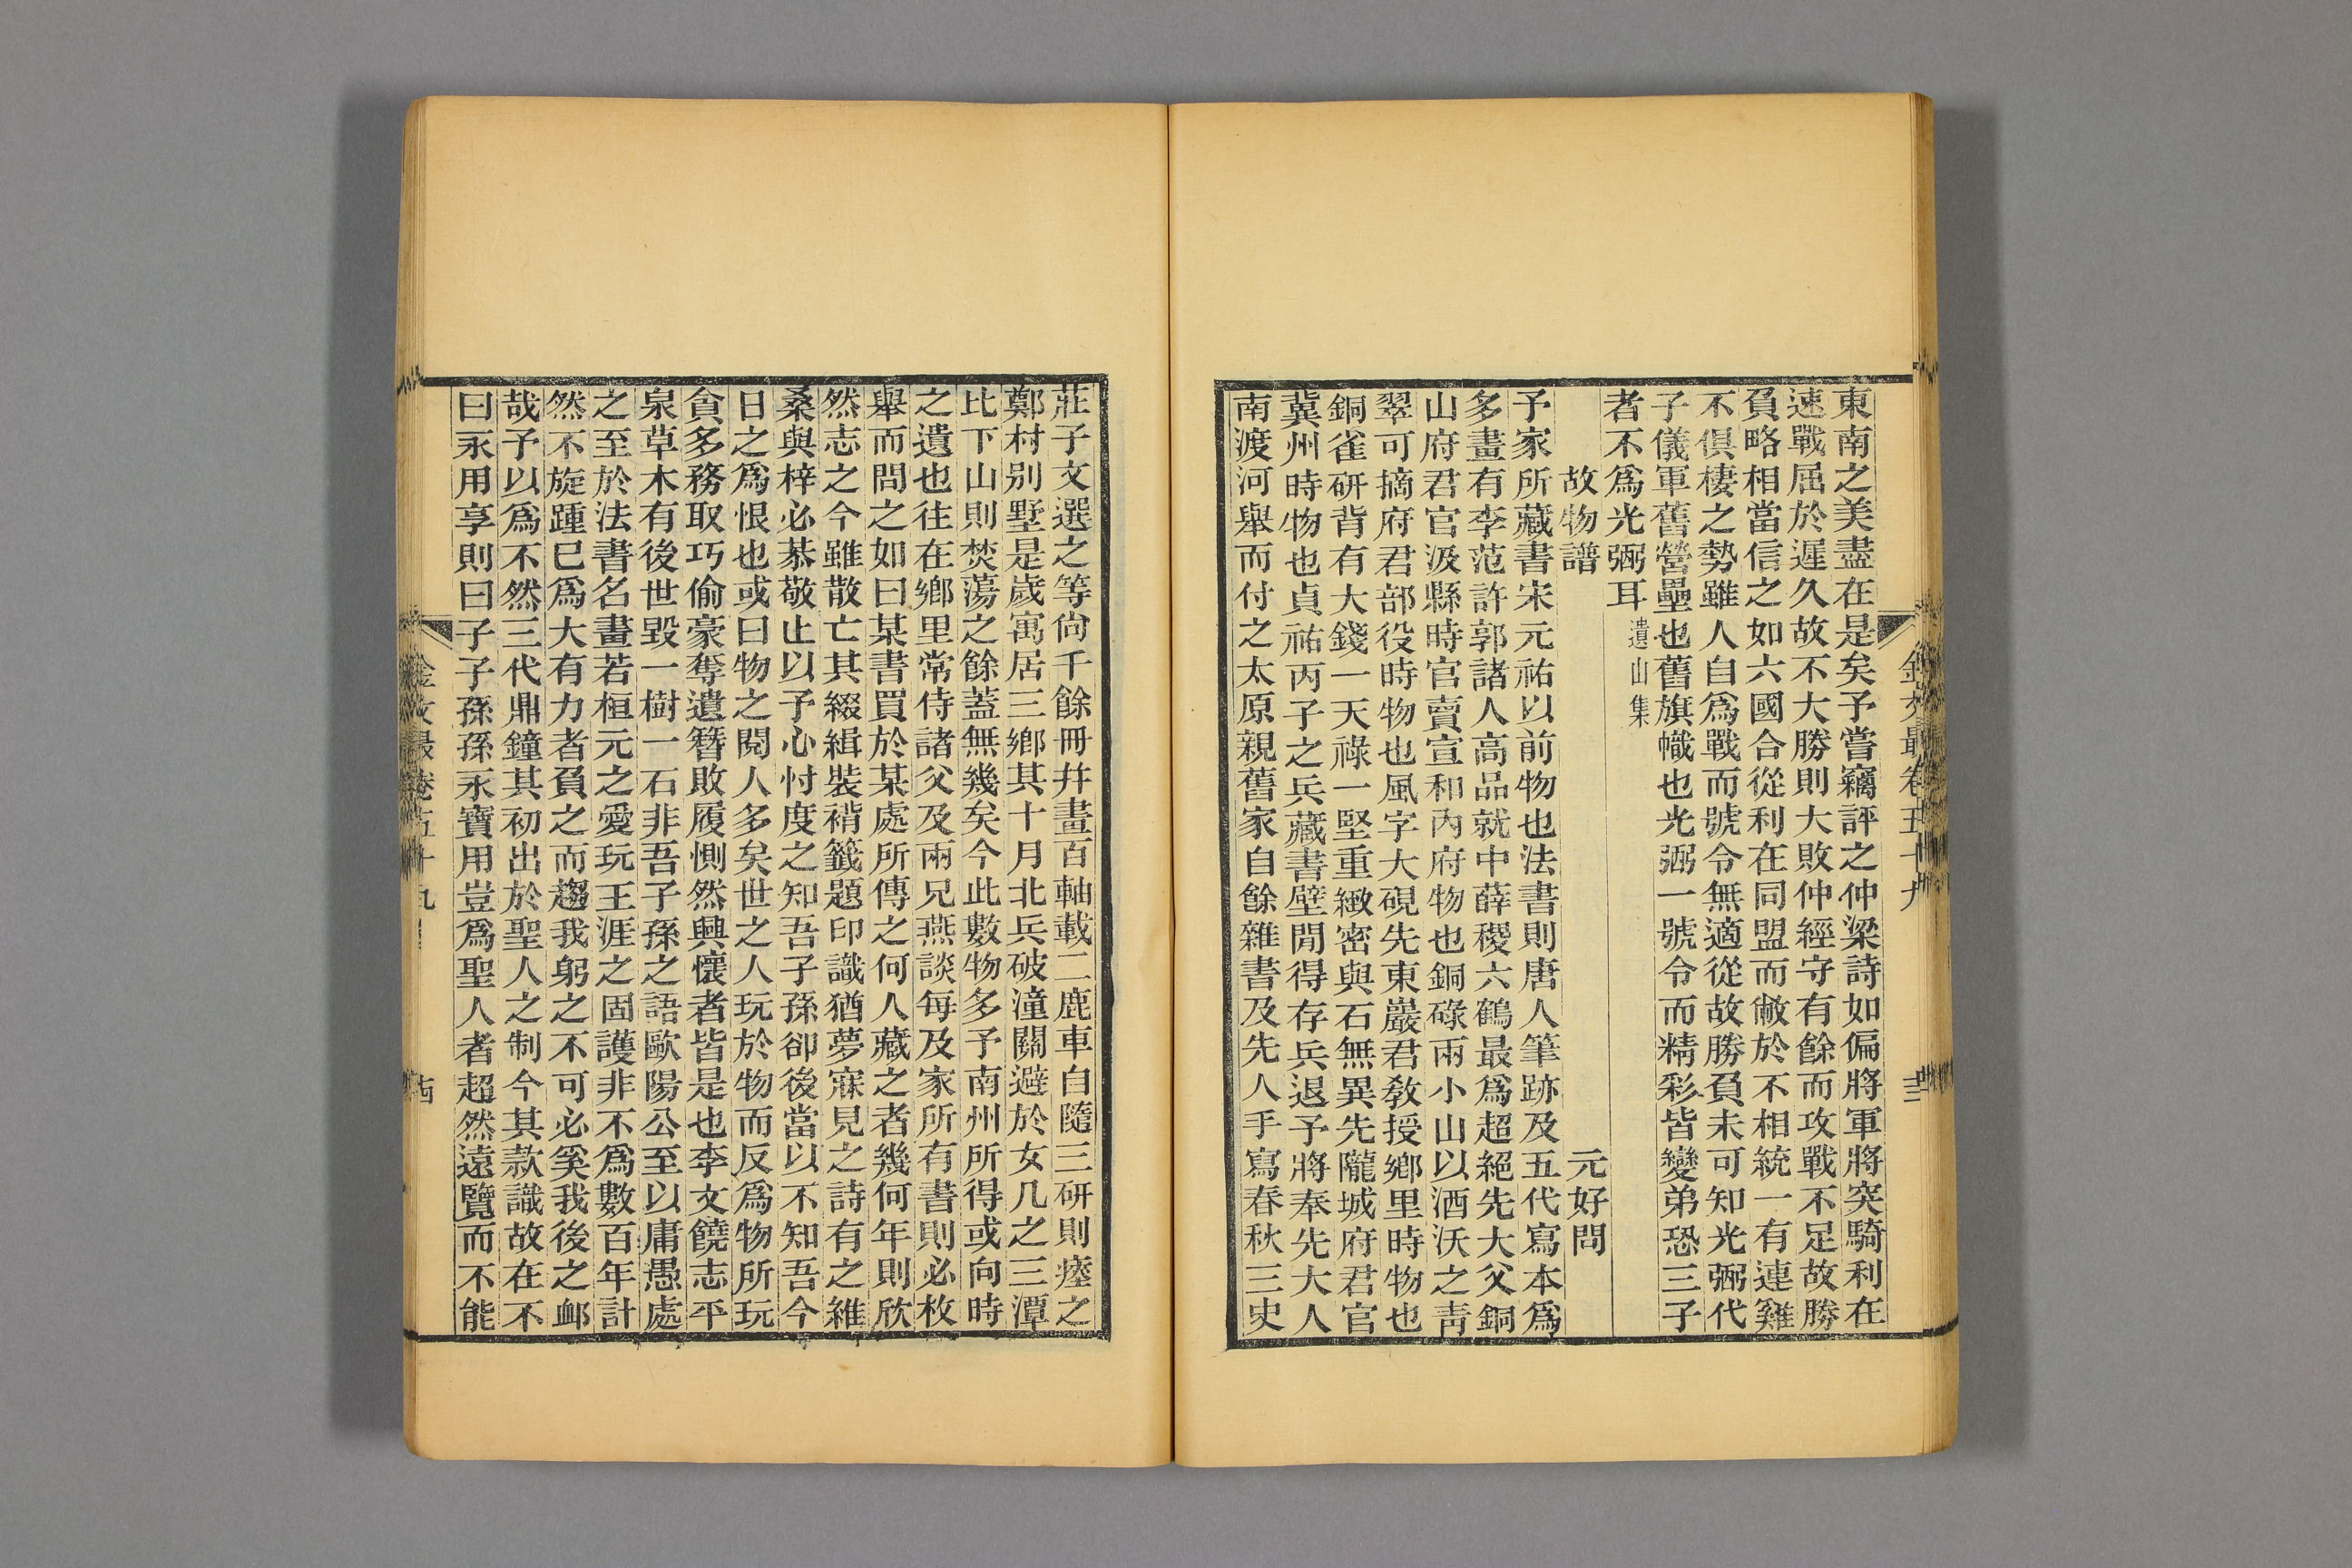 東南之美盡在是矣予嘗竊評之仲梁詩如偏將軍將突騎利在
速戰屈於遲久故不大勝則大敗仲經守有餘而攻戰不足故勝
負略相當信之如六國合從利在同盟而敝於不相統一有連雞
不俱棲之勢雖人自爲戰而號令無適從故勝負未可知光弼代
子儀軍舊營壘也舊旗幟也光弼一號令而精彩皆變弟恐三子
者不爲光弼耳遺山集
故物譜 元好問
予家所藏書宋元祐以前物也法書則唐人筆跡及五代寫本爲
多畫有李范許郭諸人高品就中薛稷六鶴最爲超絕先大父銅
山府君官汲縣時官賣宣和內府物也銅碌兩小山以酒沃之靑
翠可摘府君部役時物也風字大硯先東巖君敎授鄉里時物也
銅雀研背有大錢一天祿一堅重緻密與石無異先隴城府君官
冀州時物也貞祐丙子之兵藏書壁閒得存兵退予將奉先大人
南渡河舉而付之太原親舊家自餘雜書及先人手寫春秋三史
金文最卷五十九
莊子文選之等尙千餘冊幷畫百軸載二鹿車自隨三研則瘞之
鄭村別墅是歲寓居三鄉其十月北兵破潼關避於女几之三潭
比下山則焚蕩之餘蓋無幾矣今此數物多予南州所得或向時
之遺也往在鄉里常侍諸父及兩兄燕談每及家所有書則必枚
舉而問之如曰某書買於某處所傳之何人藏之者幾何年則欣
然志之今雖散亡其綴緝裝褙籤題印識猶夢寐見之詩有之維
桑與梓必恭敬止以予心忖度之知吾子孫卻後當以不知吾今
日之爲恨也或曰物之閱人多矣世之人玩於物而反爲物所玩
貪多務取巧偷豪奪遺簪敗履惻然興懷者皆是也李文饒志平
泉草木有後世毀一樹一石非吾子孫之語歐陽公至以庸愚處
之至於法書名畫若桓元之愛玩王涯之固護非不爲數百年計
然不旋踵已爲大有力者負之而趨我躬之不可必奚我後之卹
哉予以爲不然三代鼎鐘其初出於聖人之制今其款識故在不
曰永用享則曰子子孫孫永寶用豈爲聖人者超然遠覽而不能
金文最卷五十九